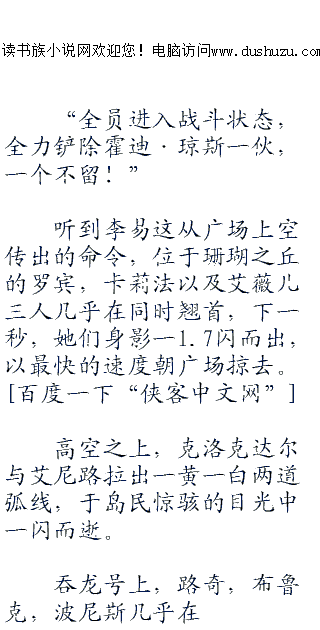 读书族小说网欢迎您！电脑访问www.dushuzu.com
“全员进入战斗状态，
全力铲除霍迪·琼斯一伙，
一个不留！”
听到李易这从广场上空
传出的命令，位于珊瑚之丘
的罗宾，卡莉法以及艾薇儿
三人几乎在同时翘首，下一
秒，她们身影一1.7闪而出，
以最快的速度朝广场掠去。
[百度一下“侠客中文网”]
高空之上，克洛克达尔
与艾尼路拉出一黄一白两道
弧线，于岛民惊骇的目光中
一闪而逝。
吞龙号上，路奇，布鲁
克，波尼斯几乎在